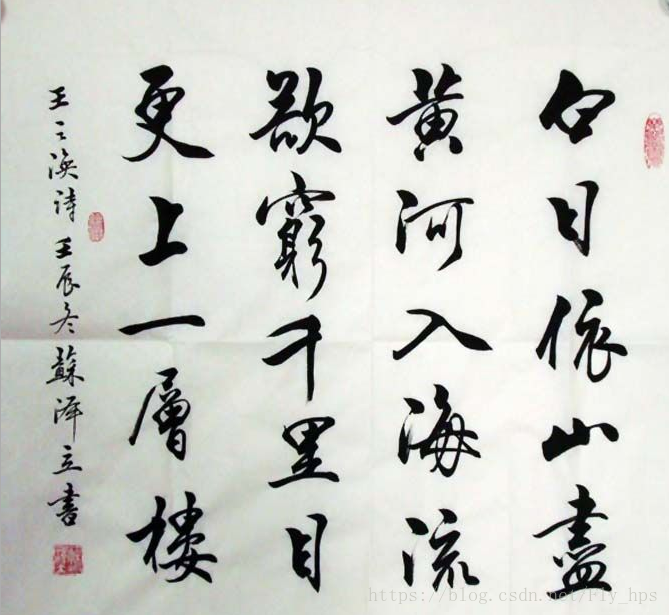 白日依山盡
黄河入海流
欲窮千里目
更上一層樓
王之渙詩 壬辰冬 蘇澤立書
https://blog.csdn.net/Fly_hps